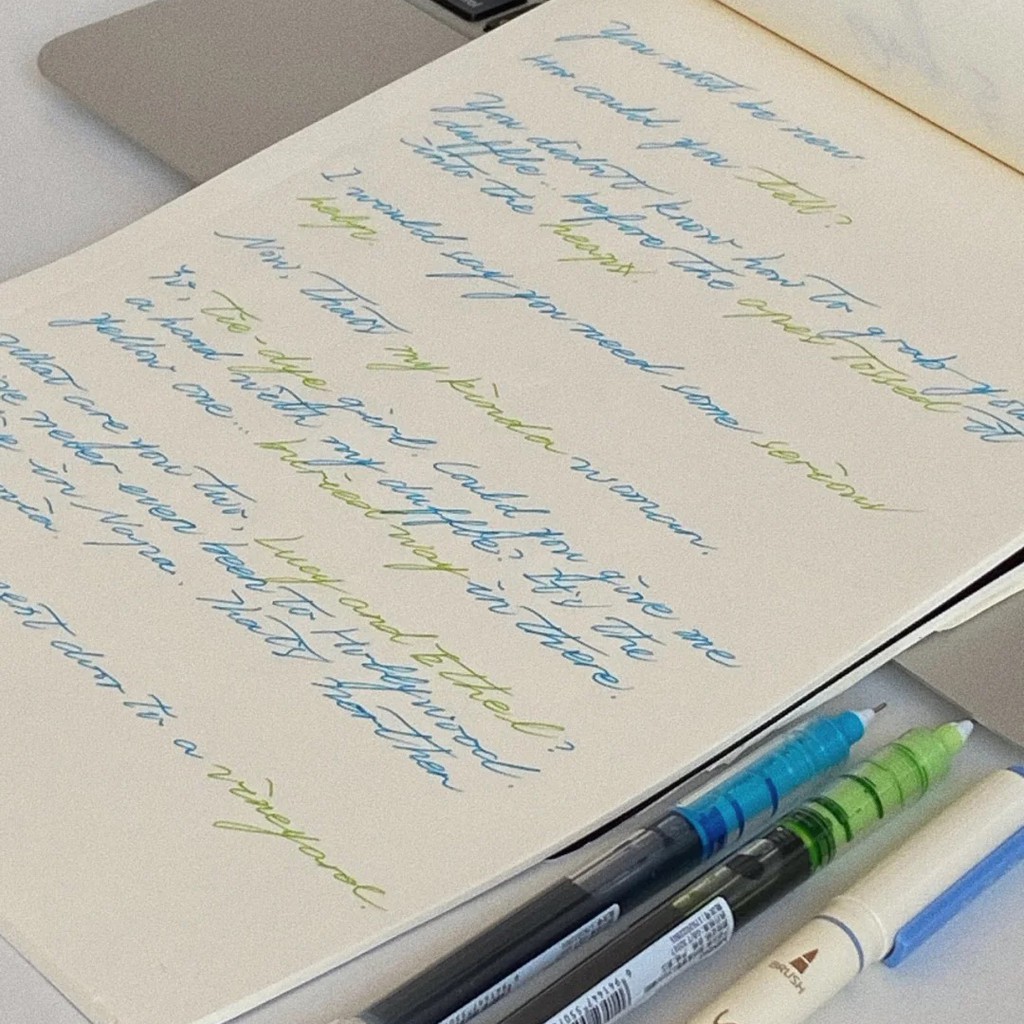 You must be new
How could you tell?
You didn't know how to grab your
duffle.. before the apes tossed it
into the heaps.
I would say you need some serious
help.
Now, that's my kinda woman.
Yo, tie-dye girl. Could you give me
a hand with my duffle? It's the
yellow one... buried way in there.
What are you two, Lucy and Ethel?
never even been to Hollywood.
in Napa. That's northern
door to a vineyard.
BRUSH